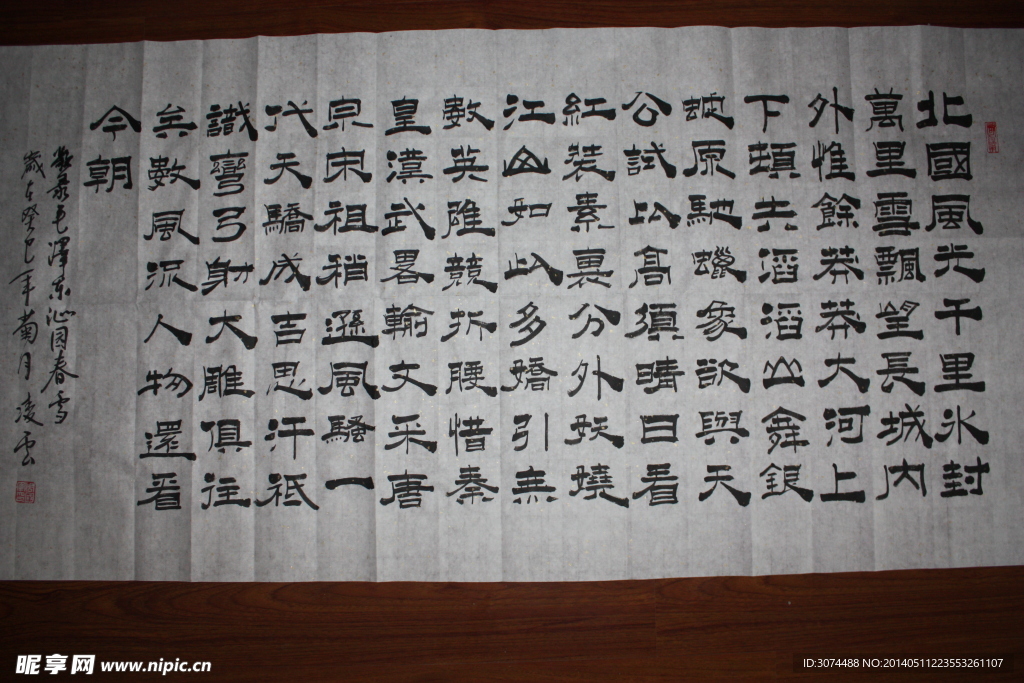 北國風光千里氷封
萬里雪飄望長城内
外惟餘莽莽大河上
下頓失滔滔山舞銀
蛇原馳蠟象欲與天
公試比高須晴日看
紅裝素裹分外妖嬈
江山如此多嬌引無
數英雄競折腰惜秦
皇漢武畧輸文采唐
宗宋祖稍遜風騷一
代天驕成吉思汗祇
識彎弓射大雕俱往
矣數風流人物還看
今朝
敬录毛澤東沁园春雪
歲在癸巳年菊月凌雲
昵享网 www.nipic.cn
ID:3074488 NO:20140511223553261107